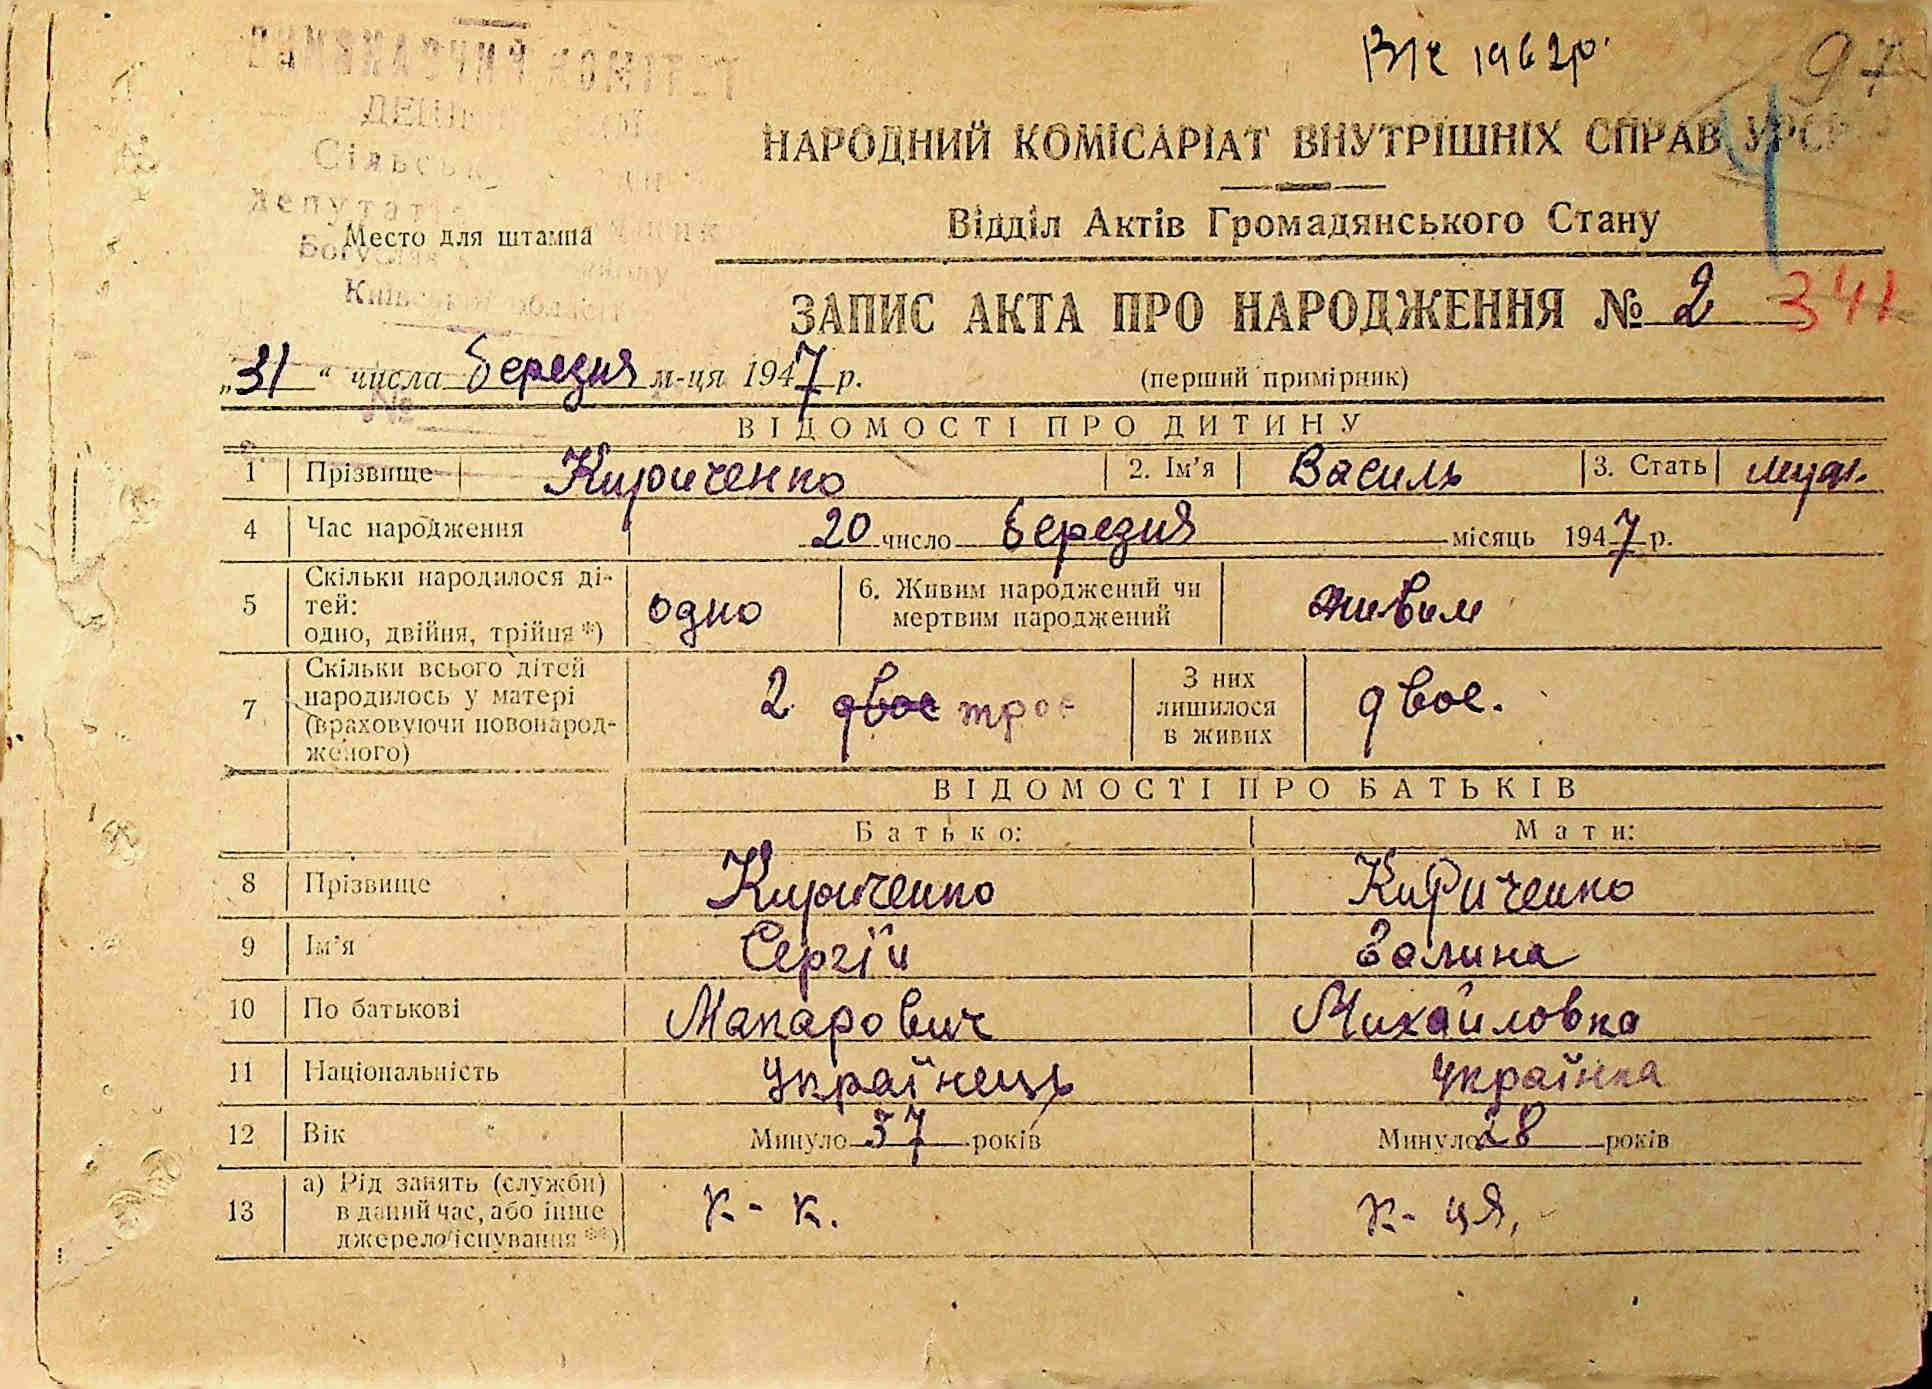 1962р.
97
НАРОДНИЙ КОМІСАРІАТ ВНУТРІШНІХ СПРАВ УРСР
Відділ Актів Громадянського Стану
Место для штампа
Київської області
ЗАПИС АКТА ПРО НАРОДЖЕННЯ № 2 341
„31“ числа березня м-ця 1947 р. (перший примірник)
№
ВІДОМОСТІ ПРО ДИТИНУ
1 Прізвище Кириченко 2. Ім'я Василь 3. Стать муж.
4 Час народження 20 число березня місяць 1947 р.
5 Скільки народилося ді-
тей:
одно, двійня, трійня *) одно 6. Живим народжений чи
мертвим народжений живим
7 Скільки всього дітей
народилось у матері
(враховуючи новонарод-
женого) 2 двоє троє З них
лишилося
в живих двоє.
ВІДОМОСТІ ПРО БАТЬКІВ
Батько: Мати:
8 Прізвище Кириченко Кириченко
9 Ім'я Сергій Галина
10 По батькові Макарович Михайловна
11 Національність Українець Українка
12 Вік Минуло 37 років Минуло 28 років
13 а) Рід занять (служби)
в даний час, або інше
джерело існування **) к-к. к-ця.